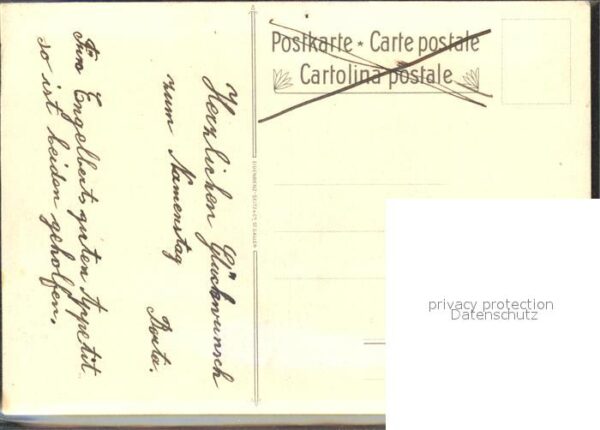 Postkarte ★ Carte postale
Cartolina postale
Herzlichen Glückwunsch
zum Namenstag
Berta.
Für Engelberts guten Appetit
so ist beiden geholfen.
privacy protection
Datenschutz